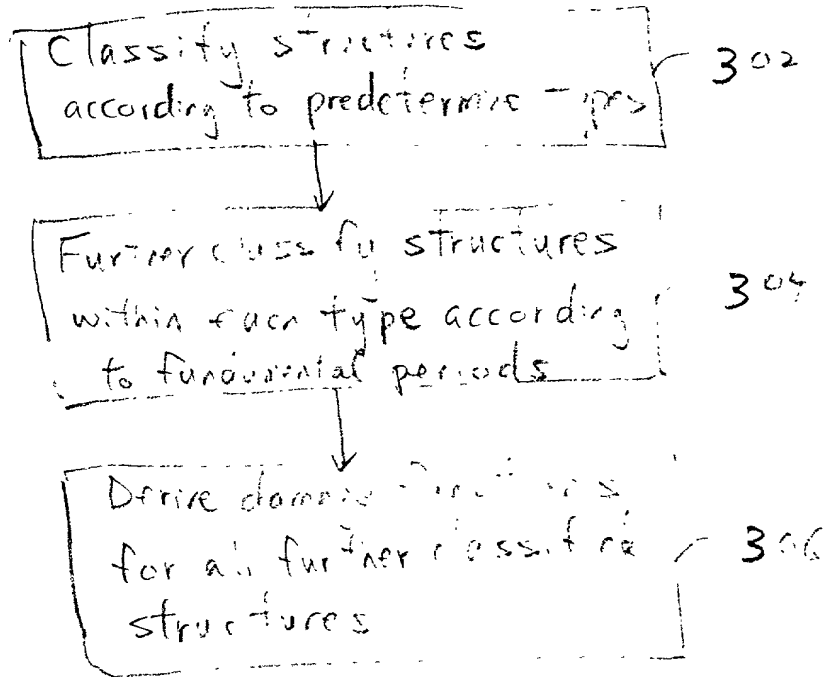 Classify structures
302
according to predetermine types
Further classify structures
within each type according
304
to fundamental periods
Derive
for all further classified
306
structures